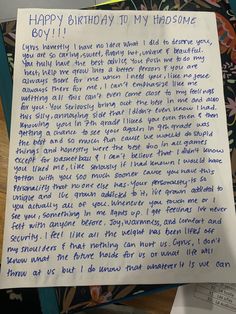 HAPPY BIRTHDAY TO MY HADSOME
BOY!!!
Cyrus, honestly I have no idea what I did to deserve you,
you are so caring, sweet, funny, hot, unique & beautiful.
You truly have the best advice. You push me to do my
best, help me grow into a better person & you are
always there for me when I need you, like no joke
always there for me, I can't emphasize like me
writing all this can't even come close to my feelings
for you. You seriously bring out the best in me and also
this silly, annoying side that I didn't even know I had.
Knowing you in 7th grade I liked you even then &
getting a chance to see you again in 9th grade was
the best and so much fun cause we would do stupid
things and honestly were the best duo in all games
except for basket ball & I can't believe that I didn't know
you liked me, like seriously if I had known I would have
gotten with you so much sooner cause you have this
personality that no one else has. Your personality is so
unique and I've grown addicted to it, I've grown addicted to
you actually all of you. Whenever you touch me or I
see you, something in me lights up. I get feelings I've never
felt with anyone before. Joy, warmness, and comfort and
security. I feel like all the weight has been lifted off
my shoulders & that nothing can hurt us. Cyrus, I don't
know what the future holds for us or what life will
throw at us but I do know that whatever it is we can